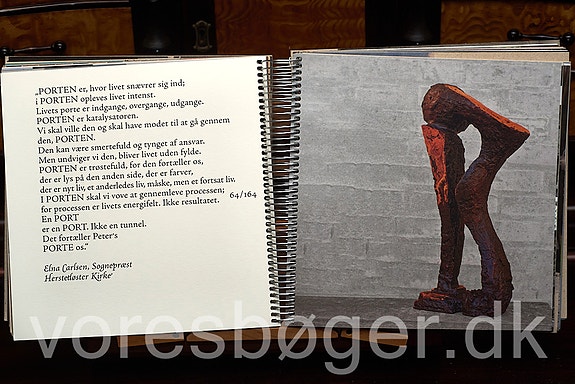 „PORTEN er, hvor livet snævrer sig ind;
i PORTEN opleves livet intenst.
Livets porte er indgange, overgange, udgange.
PORTEN er katalysatoren.
Vi skal ville den og skal have modet til at gå gennem
den, PORTEN.
Den kan være smertefuld og tynget af ansvar.
Men undviger vi den, bliver livet uden fylde.
PORTEN er trøstefuld, for den fortæller os,
der er lys på den anden side, der er farver,
der er nyt liv, et anderledes liv, måske, men et fortsat liv.
I PORTEN skal vi vove at gennemleve processen;
for processen er livets energifelt. Ikke resultatet.
64/164
En PORT
er en PORT. Ikke en tunnel.
Det fortæller Peter's
PORTE os."
Elna Carlsen, Sognepræst
Herstedøster Kirke
voresbøger.dk